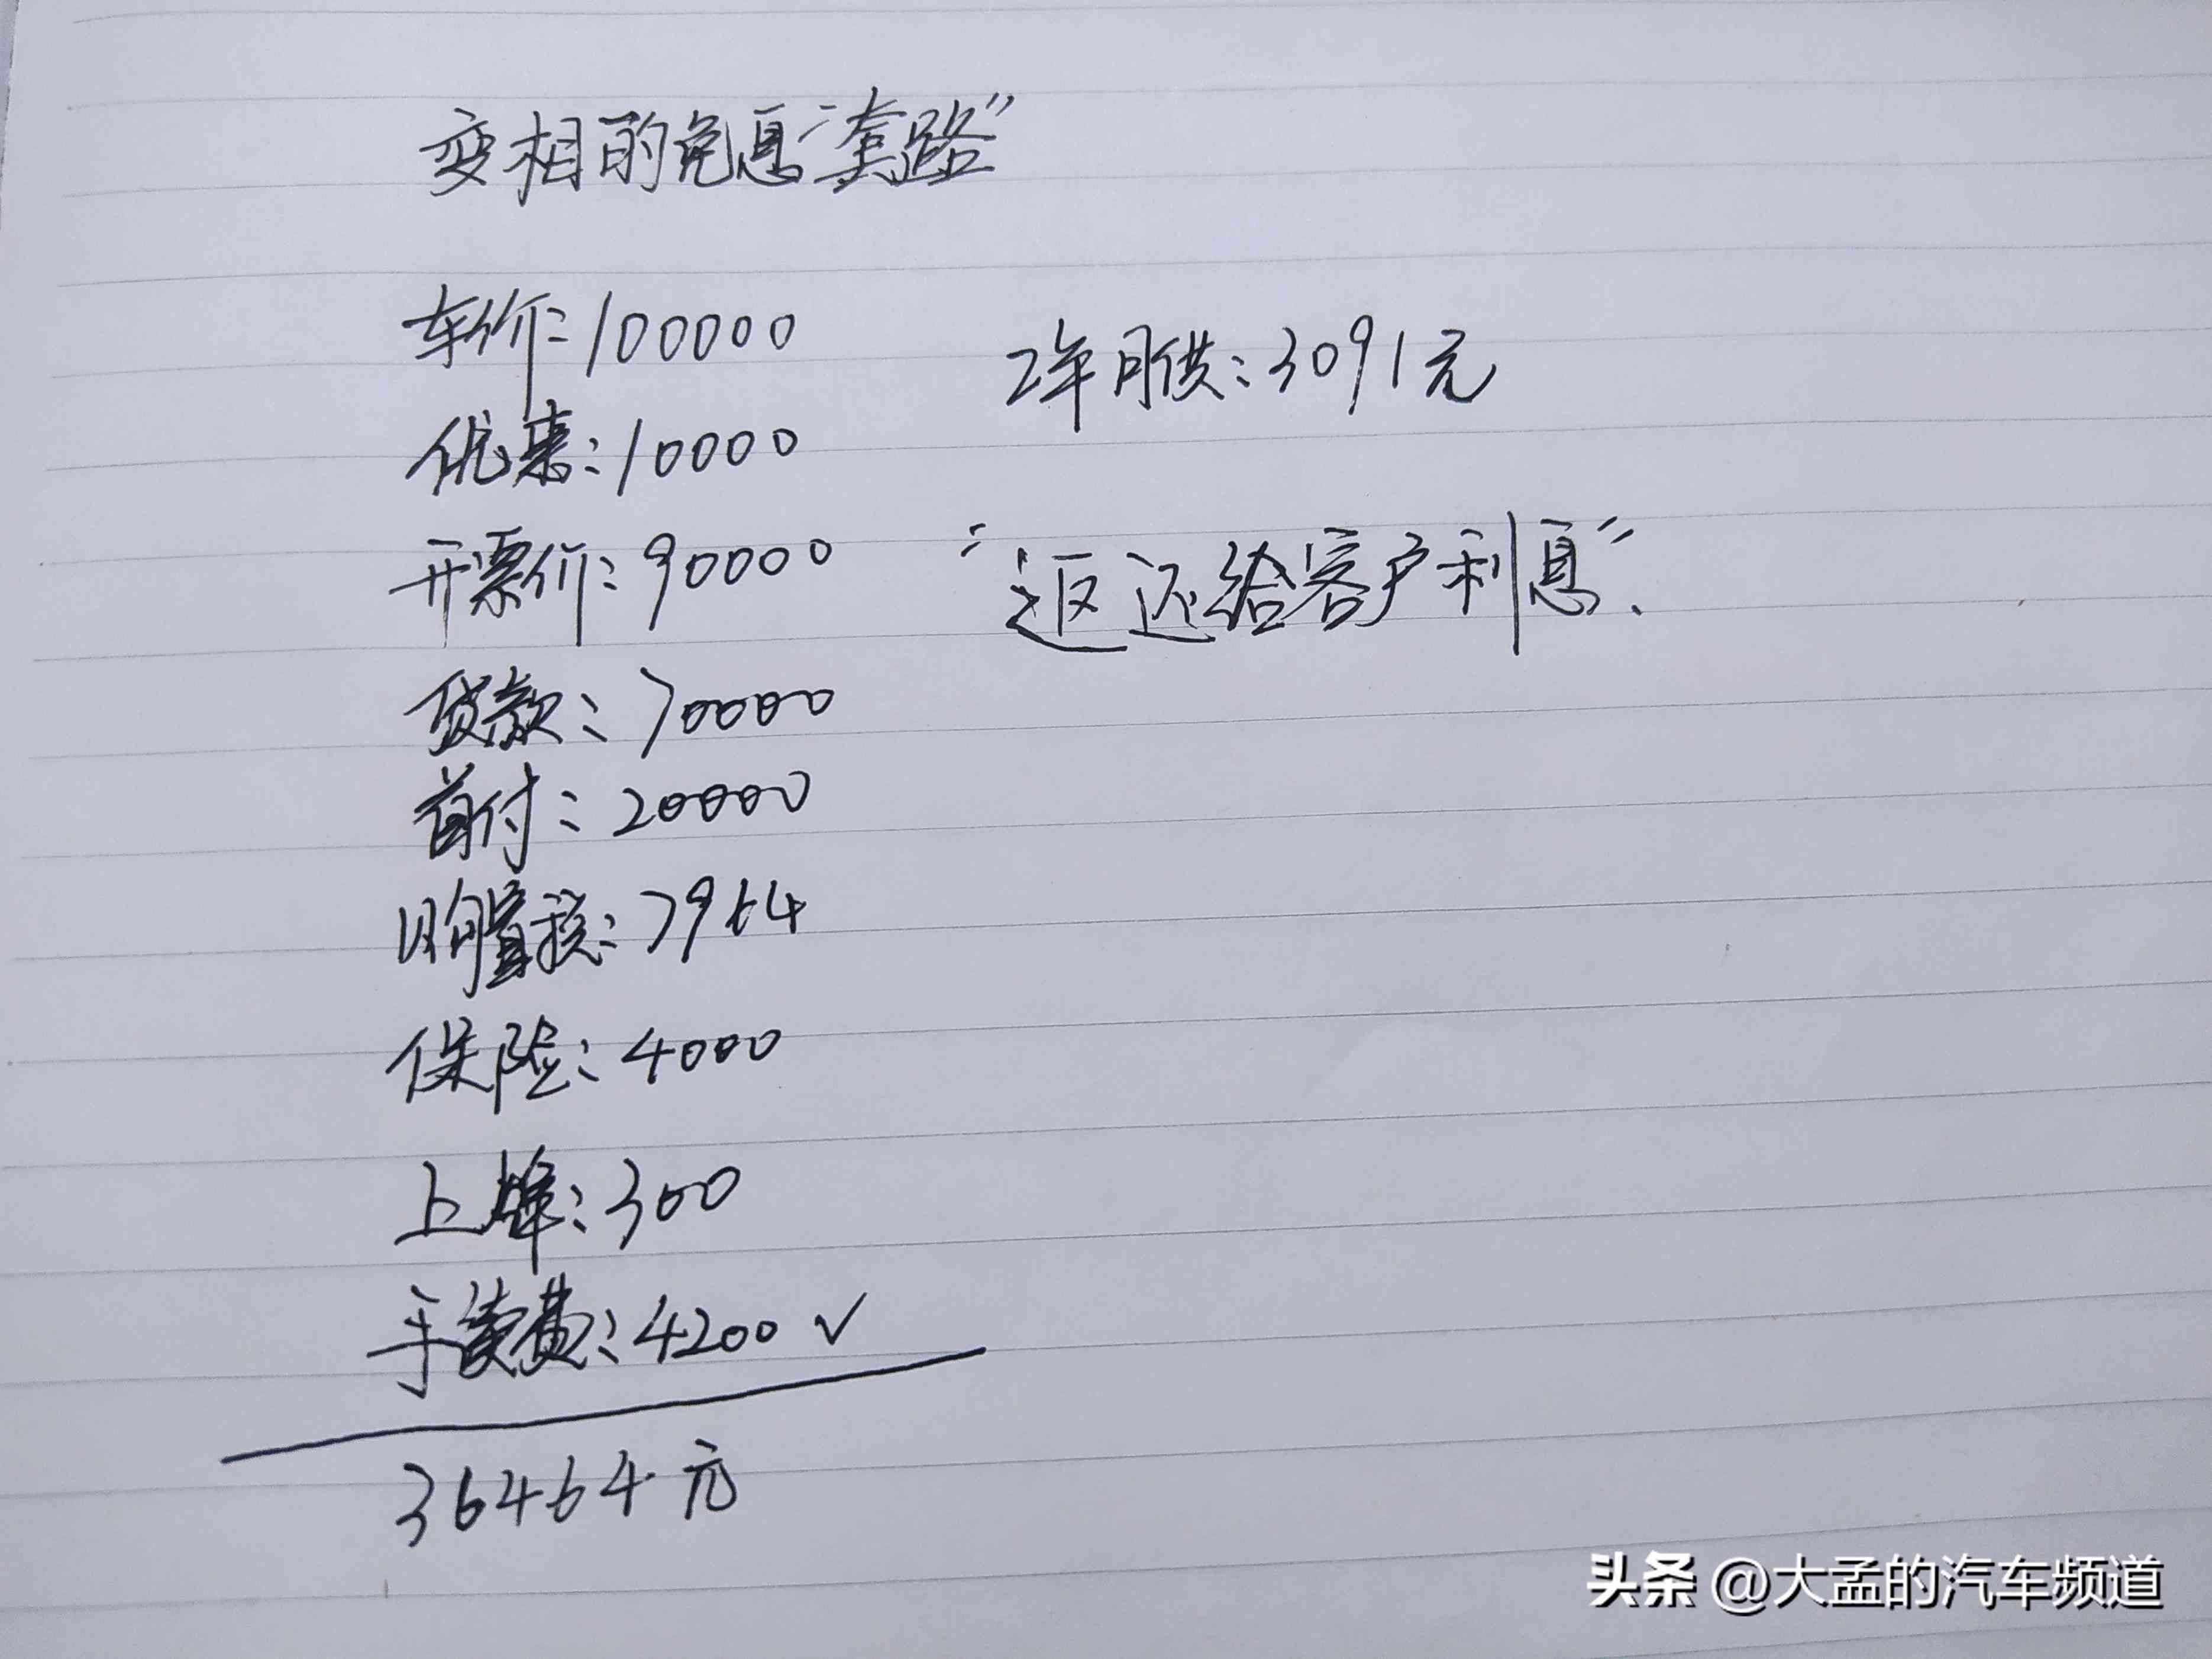 变相的免息“套路”
车价：100000
2年月供：3091元
优惠：10000
开票价：90000
“返还给客户利息”、
贷款：70000
首付：20000
购置税：7964
保险：4000
上牌：300
手续费：4200 ✓
36464元
头条 @大孟的汽车频道